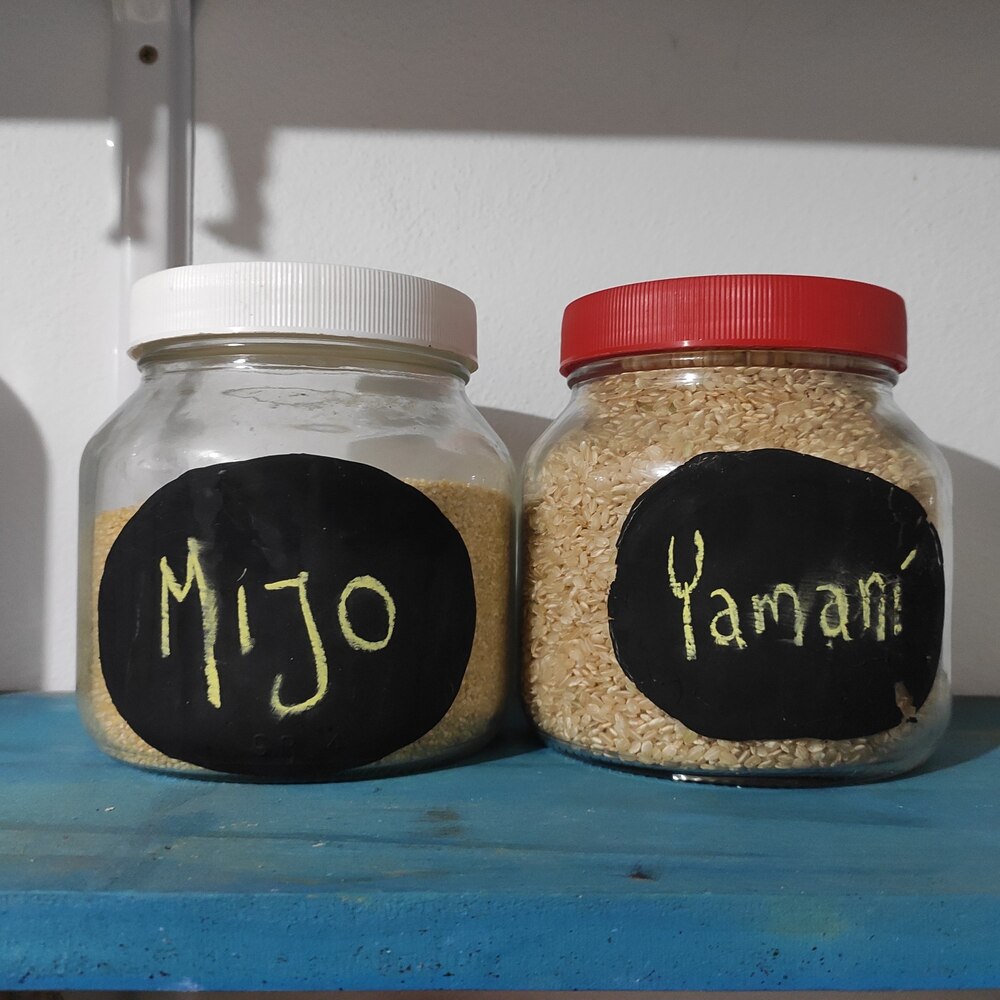 Mijo
Yamaní